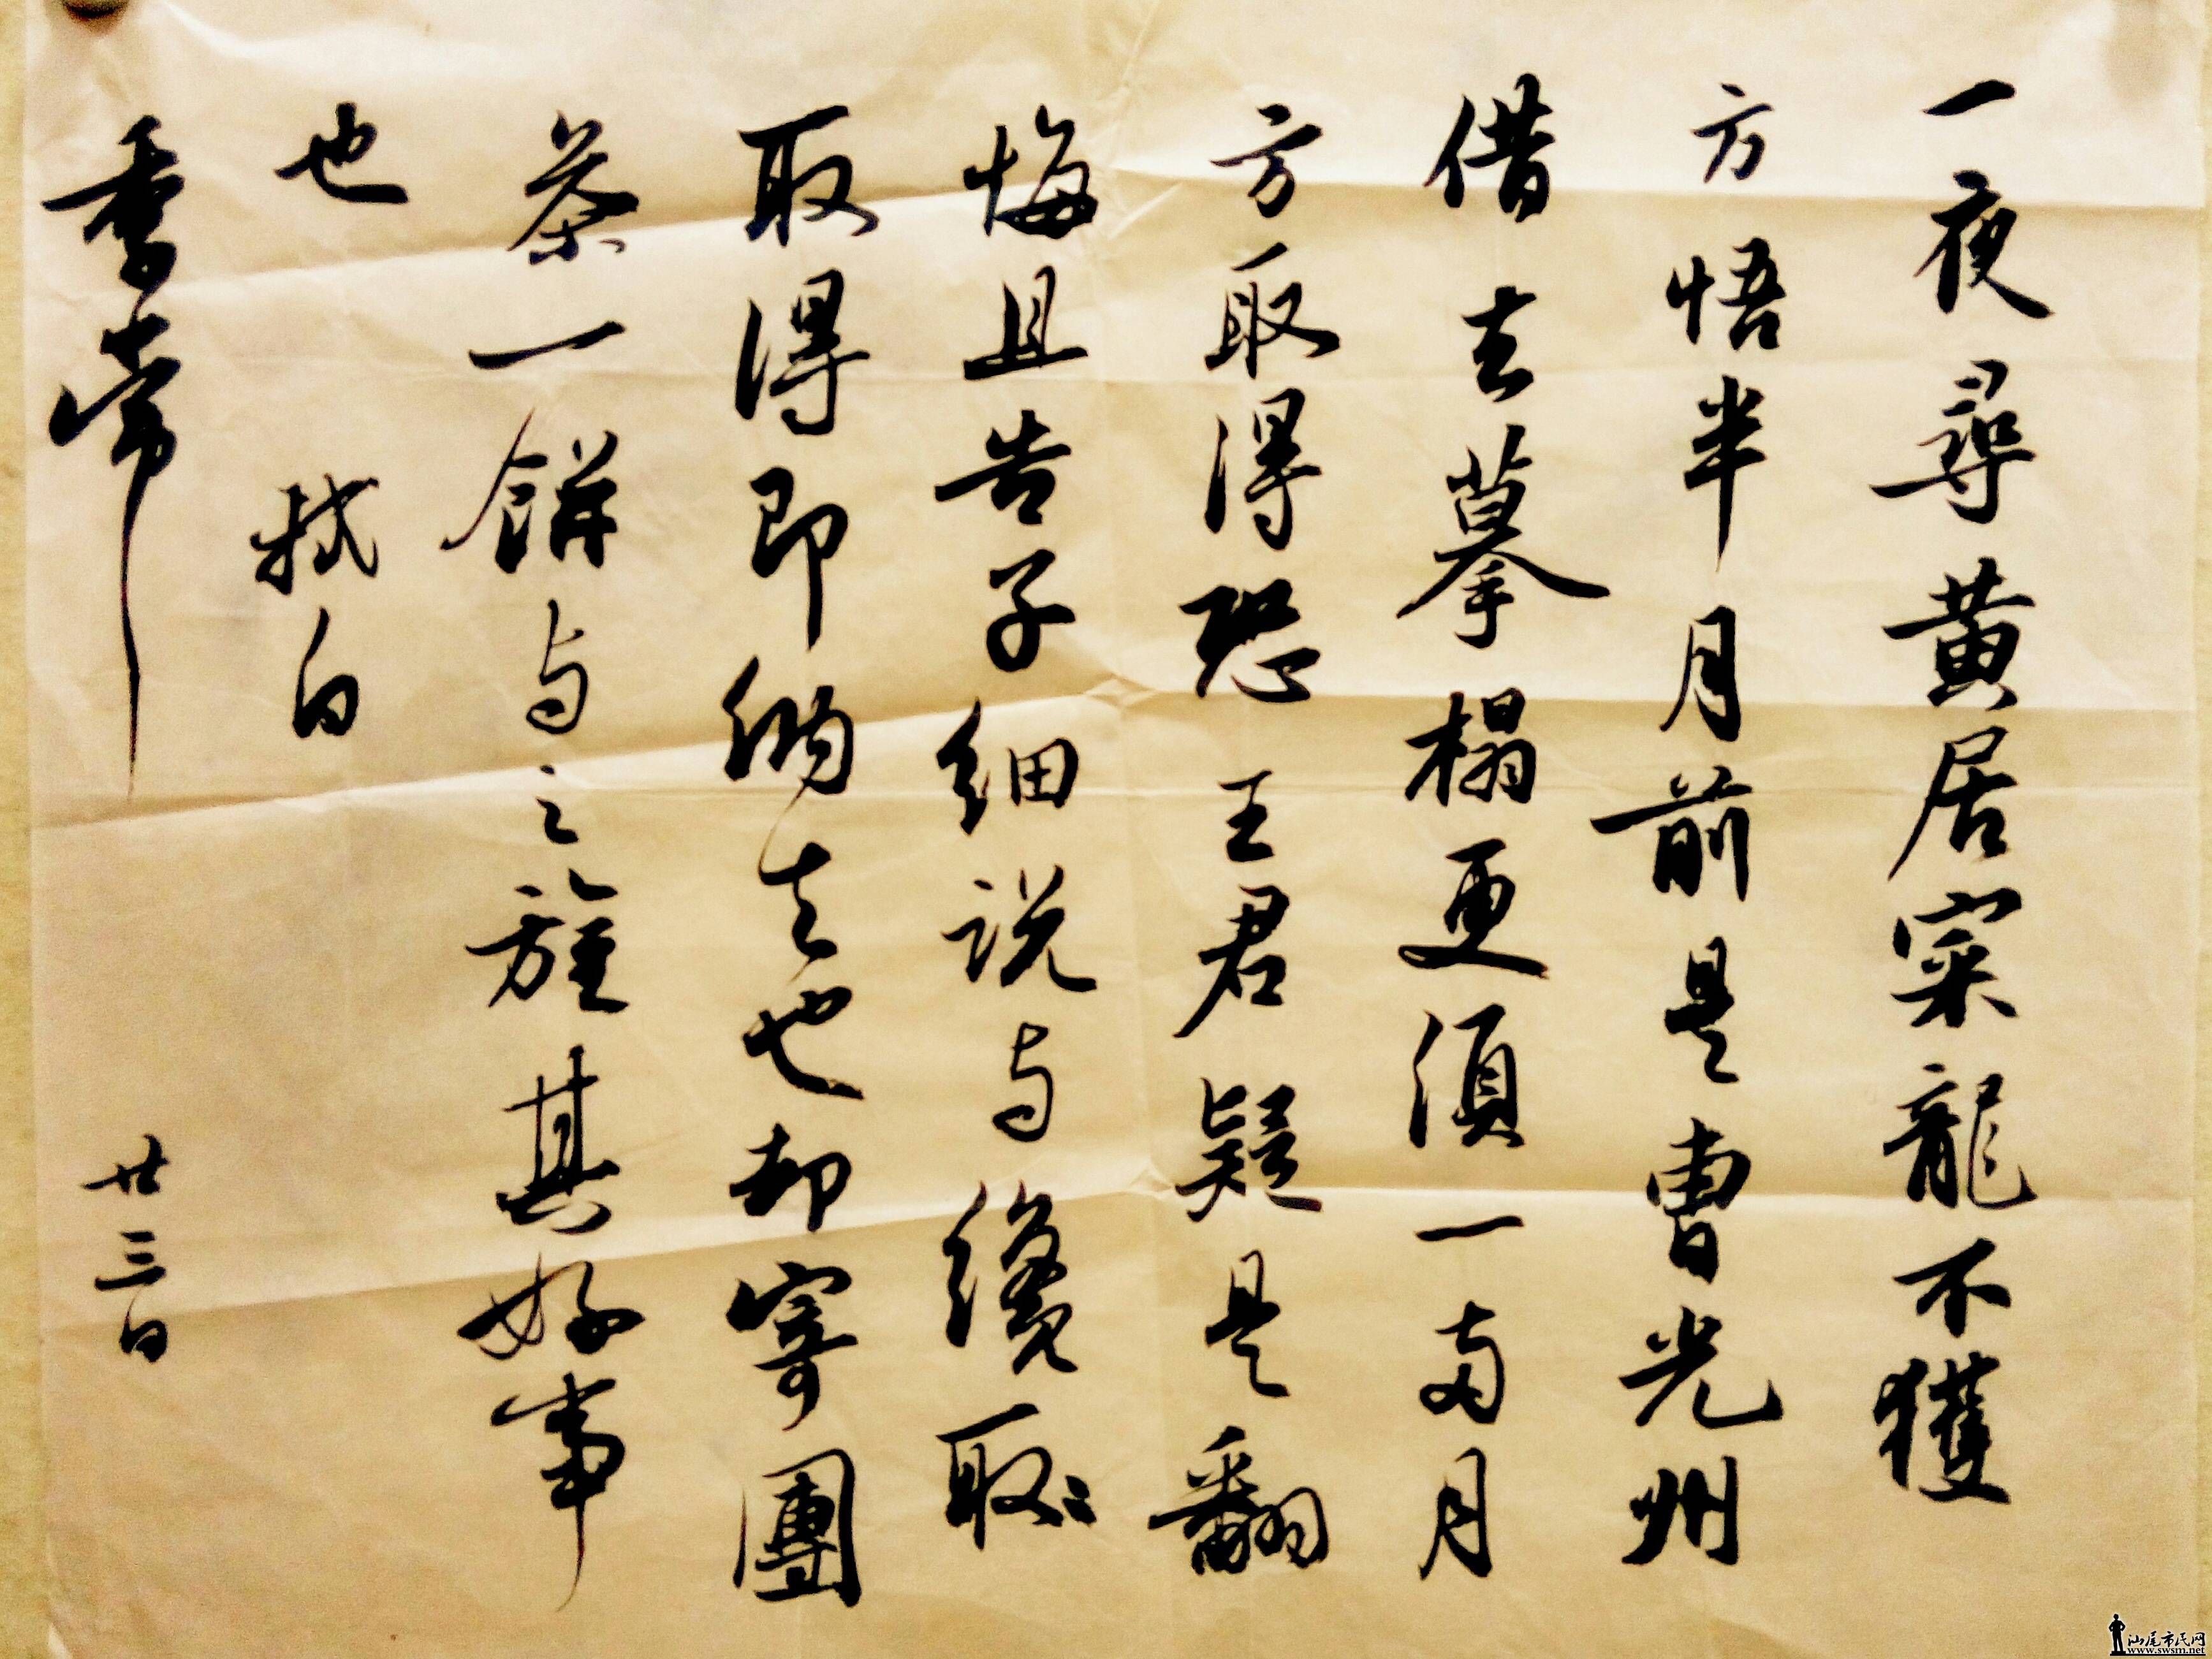 一夜尋黃居寀龍不獲
方悟半月前是曹光州
借去摹榻更須一兩月
方取得恐王君疑是翻
悔且告子細說与纔取
取得即納去也却寄團
茶一餅与之旌其好事
也 軾白
季常 廿三日
汕尾市民网
www.swsm.net